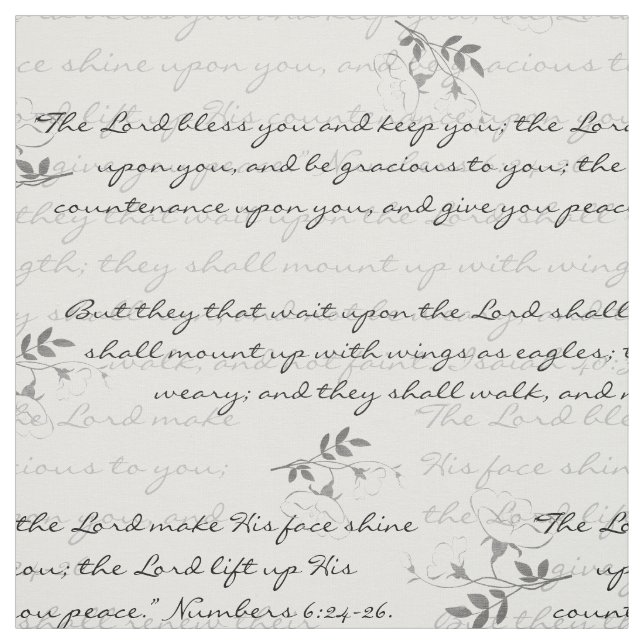 ce shine upon you, and be gracious to
Lord lift up His countenance upon you
"The Lord bless you and keep you; the Lord
give you peace." Numbers 6:24-2
upon you, and be gracious to you; the
countenance upon you, and give you peace
they that wait upon the Lord shall
gth; they shall mount up with wing
But they that wait upon the Lord shall
shall mount up with wings as eagles; t
walk, and not faint. Isaiah 40:3
weary; and they shall walk, and n
the Lord make "The Lord ble
cious to you; His face shine
the Lord make His face shine "The Lo
ou; the Lord lift up His up
ou peace." Numbers 6:24-26. count
shall renew their But they t